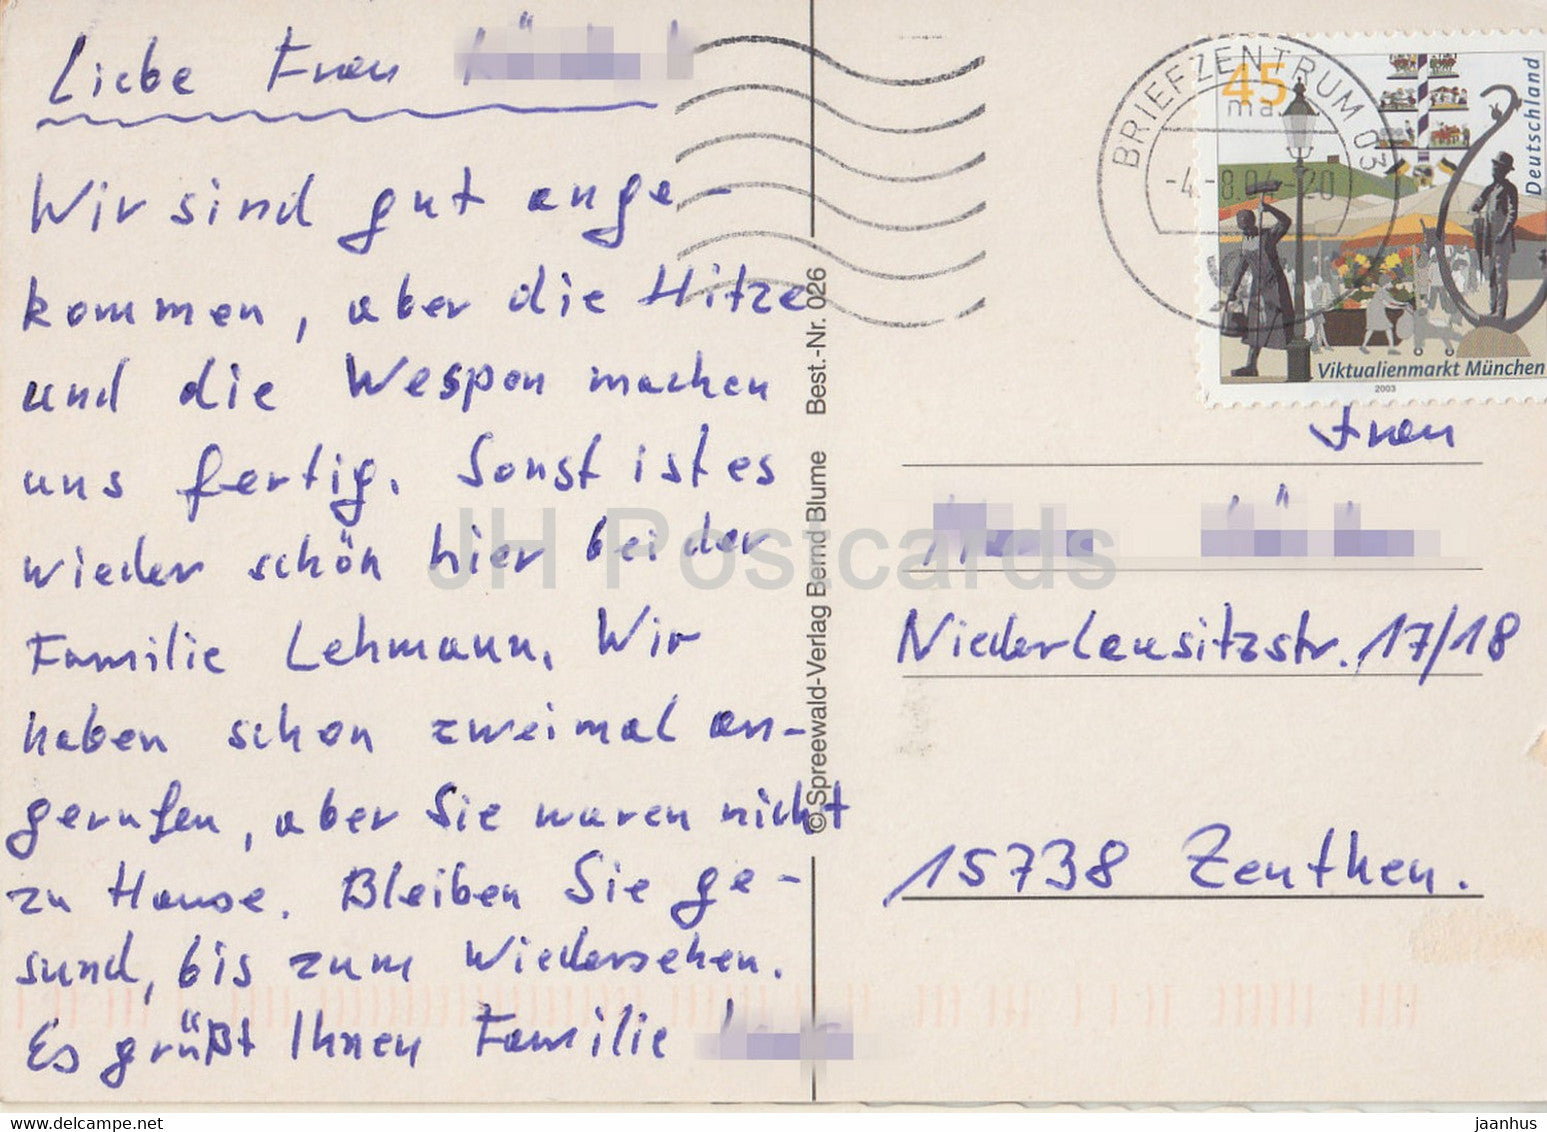 Liebe Frau
Wir sind gut ange-
kommen, aber die Hitze
und die Wespen machen
uns fertig. Sonst ist es
wieder schön hier bei der
Familie Lehmann. Wir
haben schon zweimal an-
gerufen, aber Sie waren nicht
zu Hause. Bleiben Sie ge-
sund, bis zum Wiedersehen.
Es grüßt Ihnen Familie
© Spreewald-Verlag Bernd Blume Best.-Nr. 026
BRIEFZENTRUM 03
ma
-4.-8.04-20
45
Deutschland
Viktualienmarkt München
2003
Frau
Niederlausitzstr. 17/18
15738 Zeuthen.
JH Postcards
jaanhus